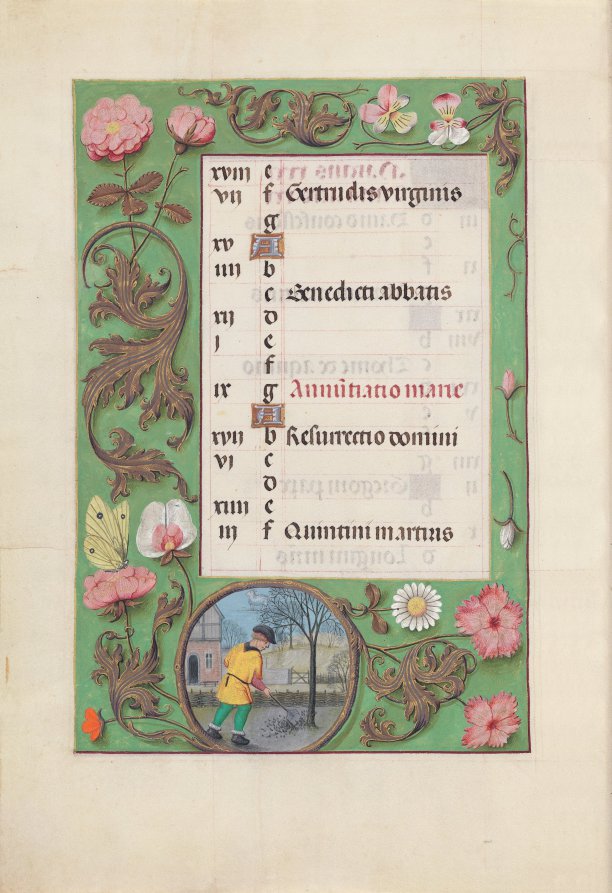 xviii e
vii f Gertrudis virginis
g
xv A
iiii b
c Benedicti abbatis
xii d
j e
f
ix g Annūtiatio marie
A
xvii b Resurrectio domini
vj c
d
xiiii e
iii f Quintini martiris